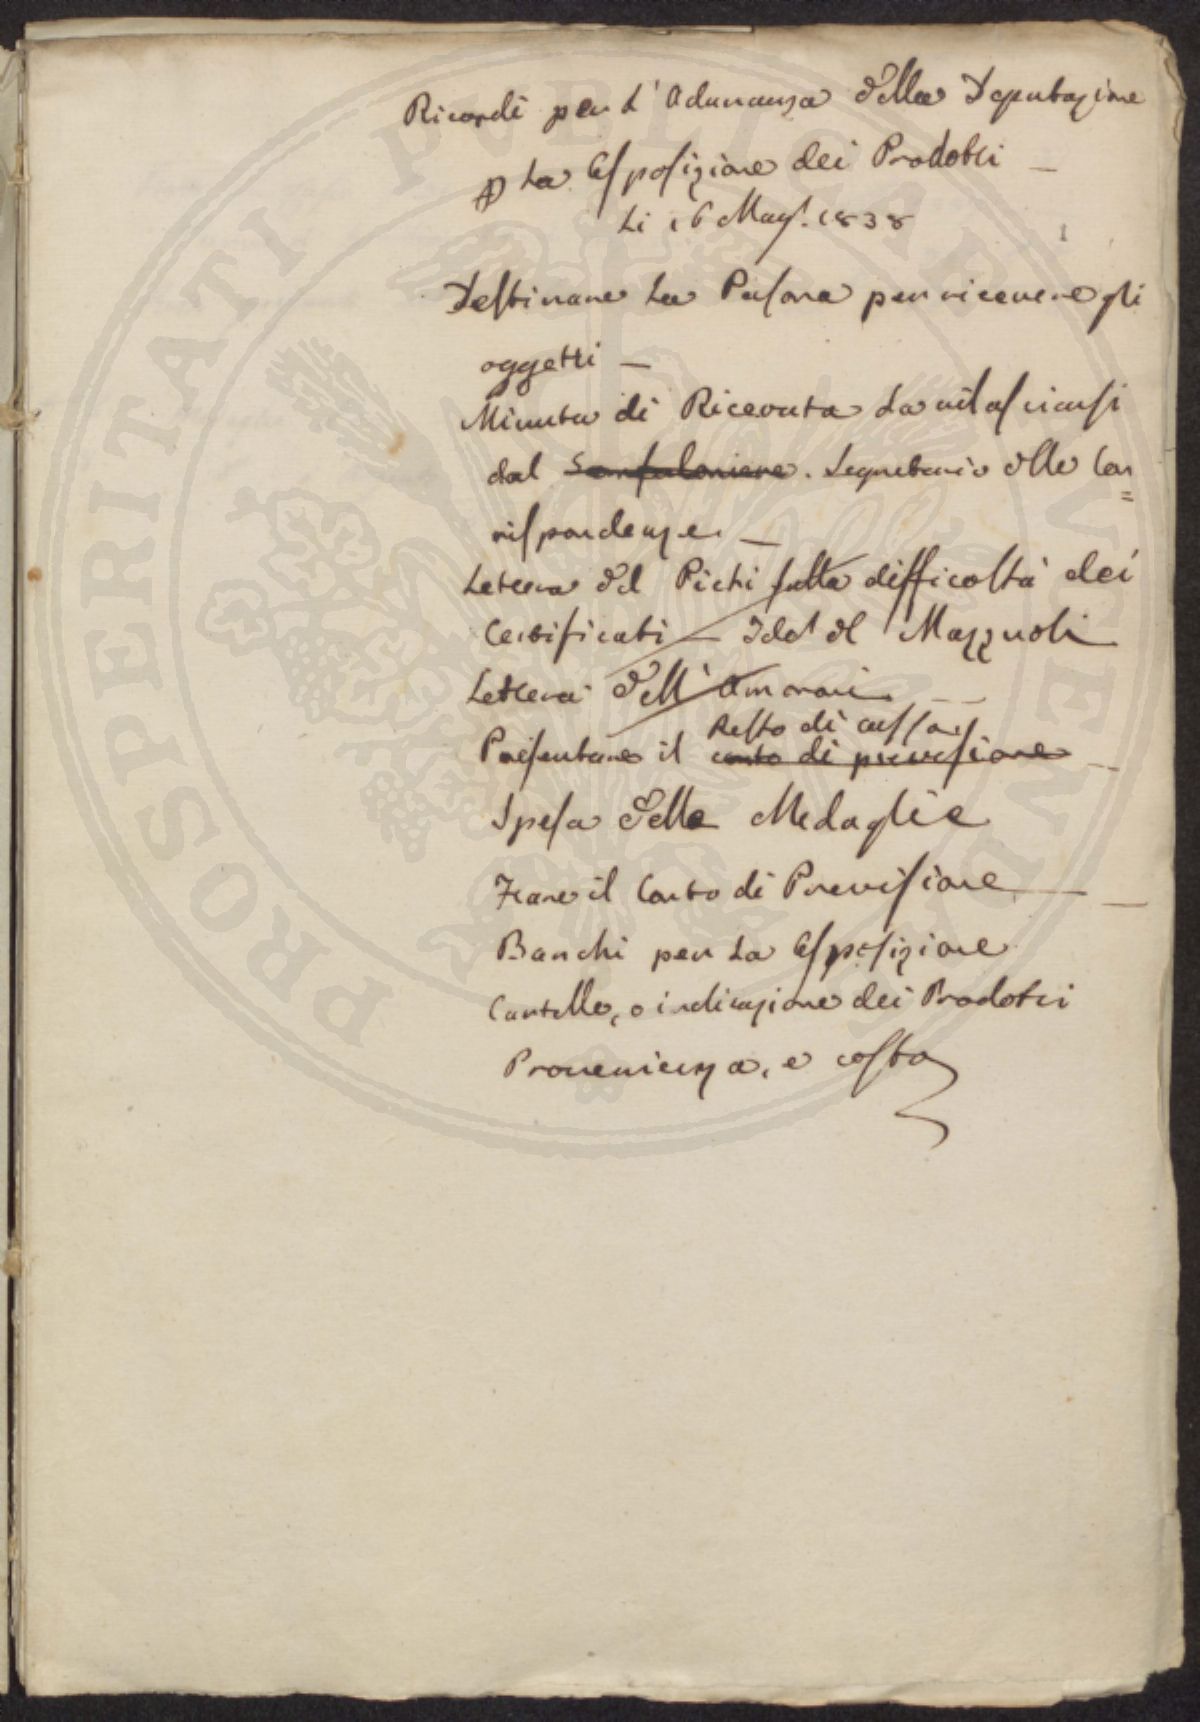 Ricordi per l'Adunanza della Deputazione
p la Esposizione dei Prodotti —
Li 16 Magg. 1838
Destinare la Persona per ricevere gli
oggetti —
Minuta di Ricevuta da rilasciarsi
dal Gonfaloniere. Segretario delle Cor=
rispondenze. —
Lettera del Pichi sulla difficoltà dei
Certificati — Idem del Mazzuoli
Lettera dell'Amorari —
Resto di cassa
Presentare il conto di previsione —
Spesa delle Medaglie
Fare il Conto di Previsione —
Banchi per la Esposizione
Cartelle, o indicazione dei Prodotti
Provenienza, e costo
PROSPERITATI PVBLICAE AVGENDAE